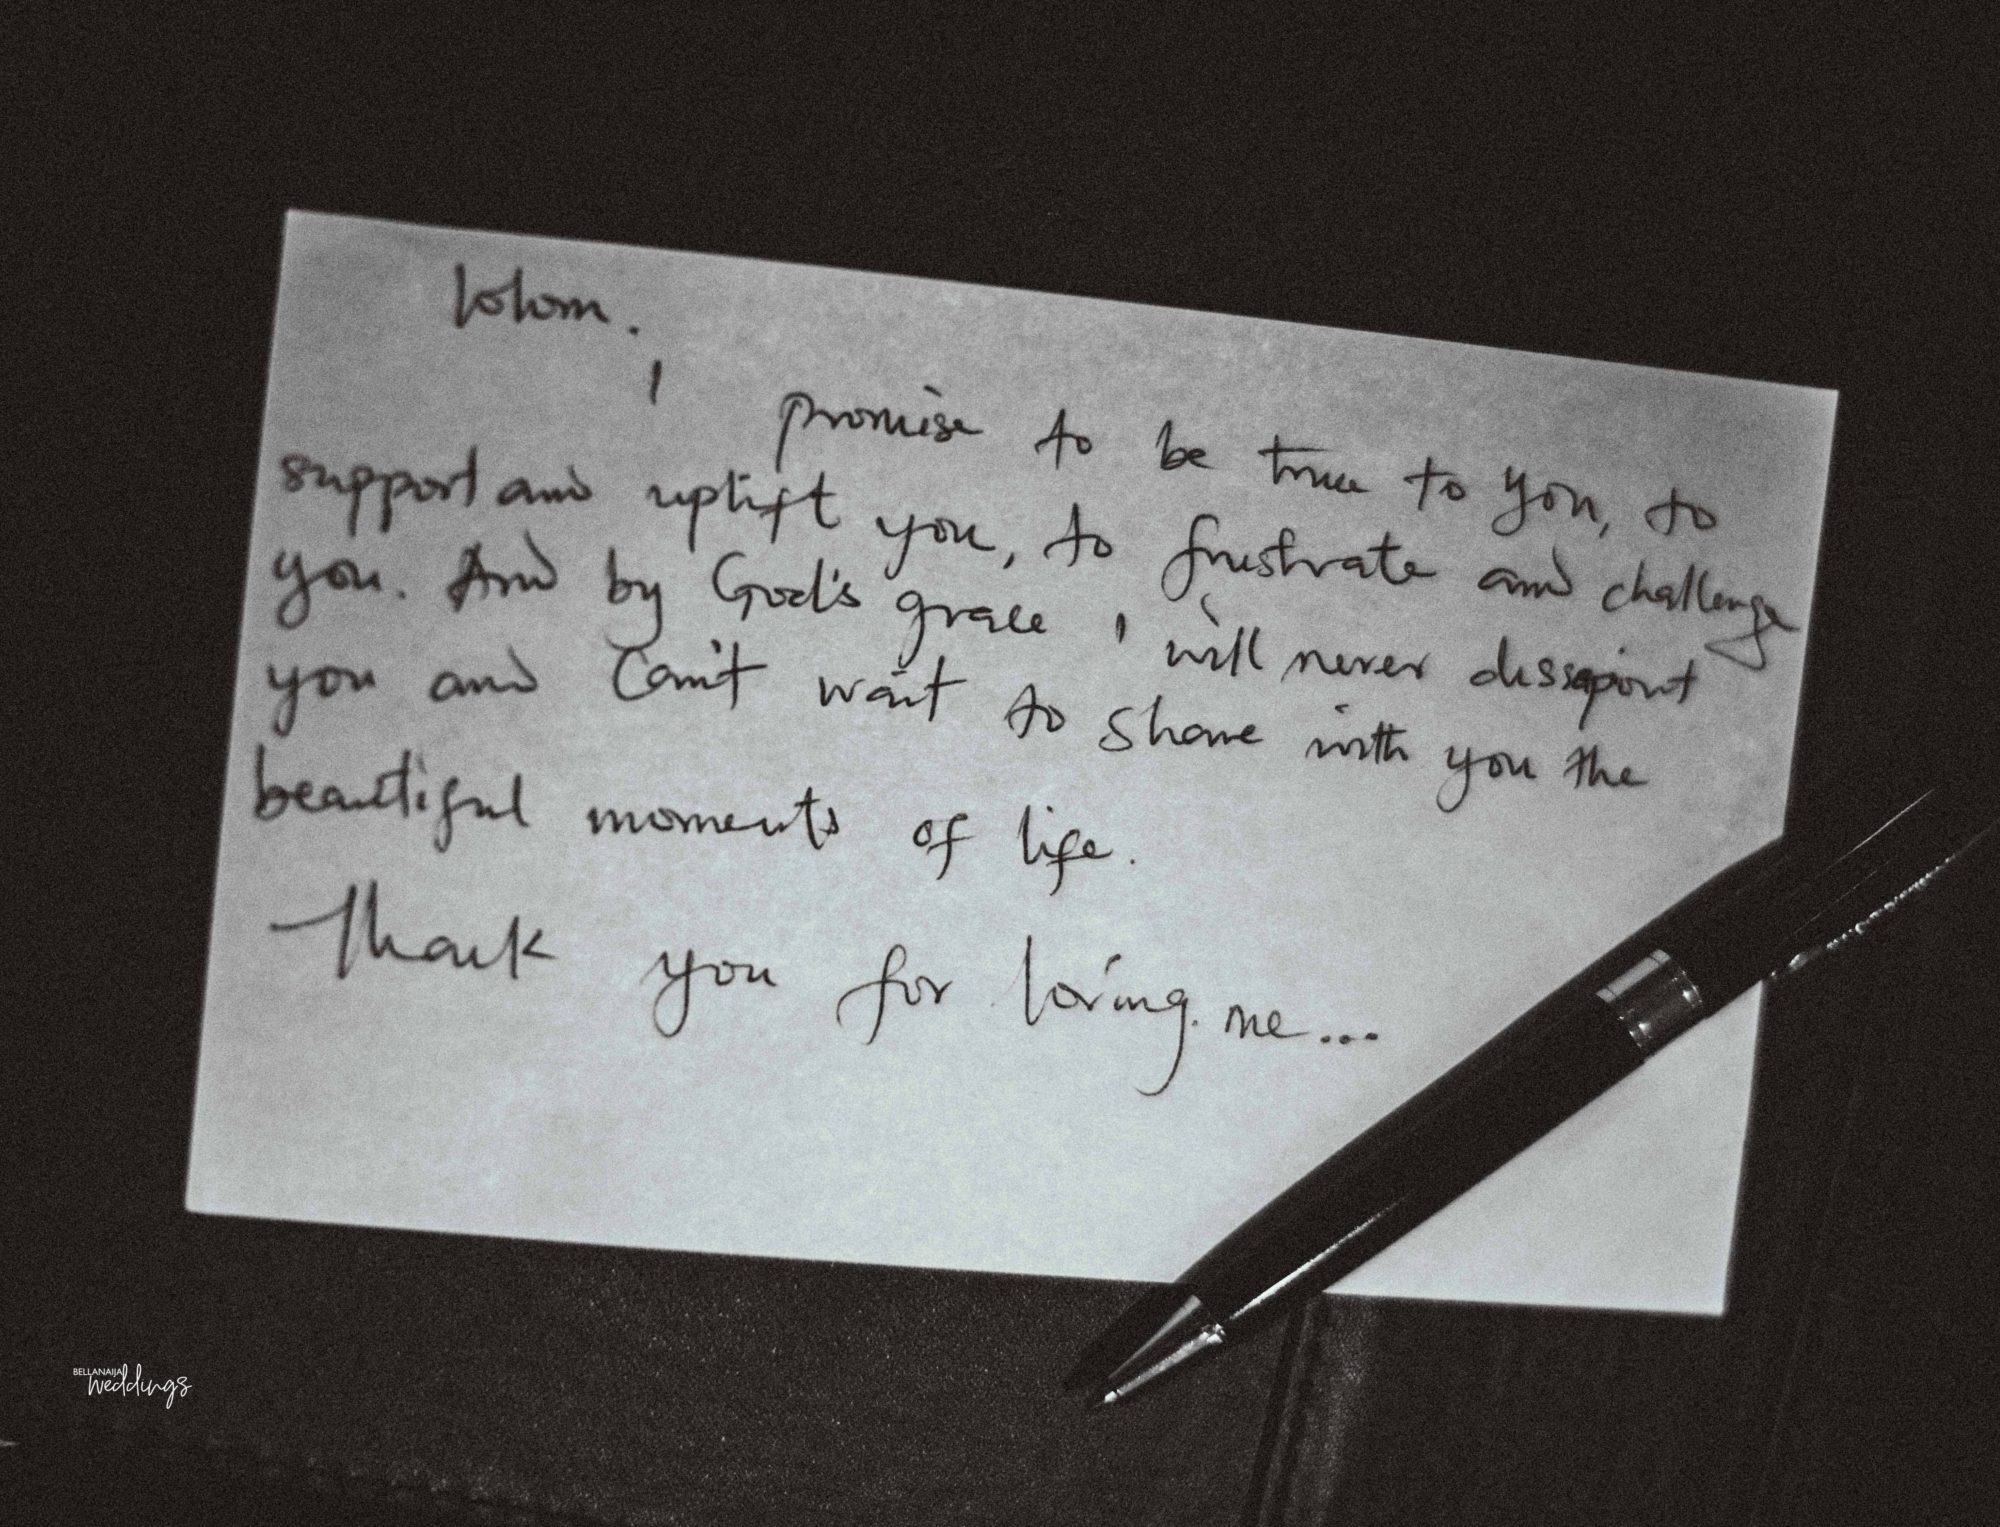 lolom.
I promise to be true to you, to
support and uplift you, to frustrate and challenge
you. And by God's grace I will never dissapoint
you and Can't wait to share with you the
beautiful moments of life.
Thank you for loving me...
BELLANAIJA
weddings